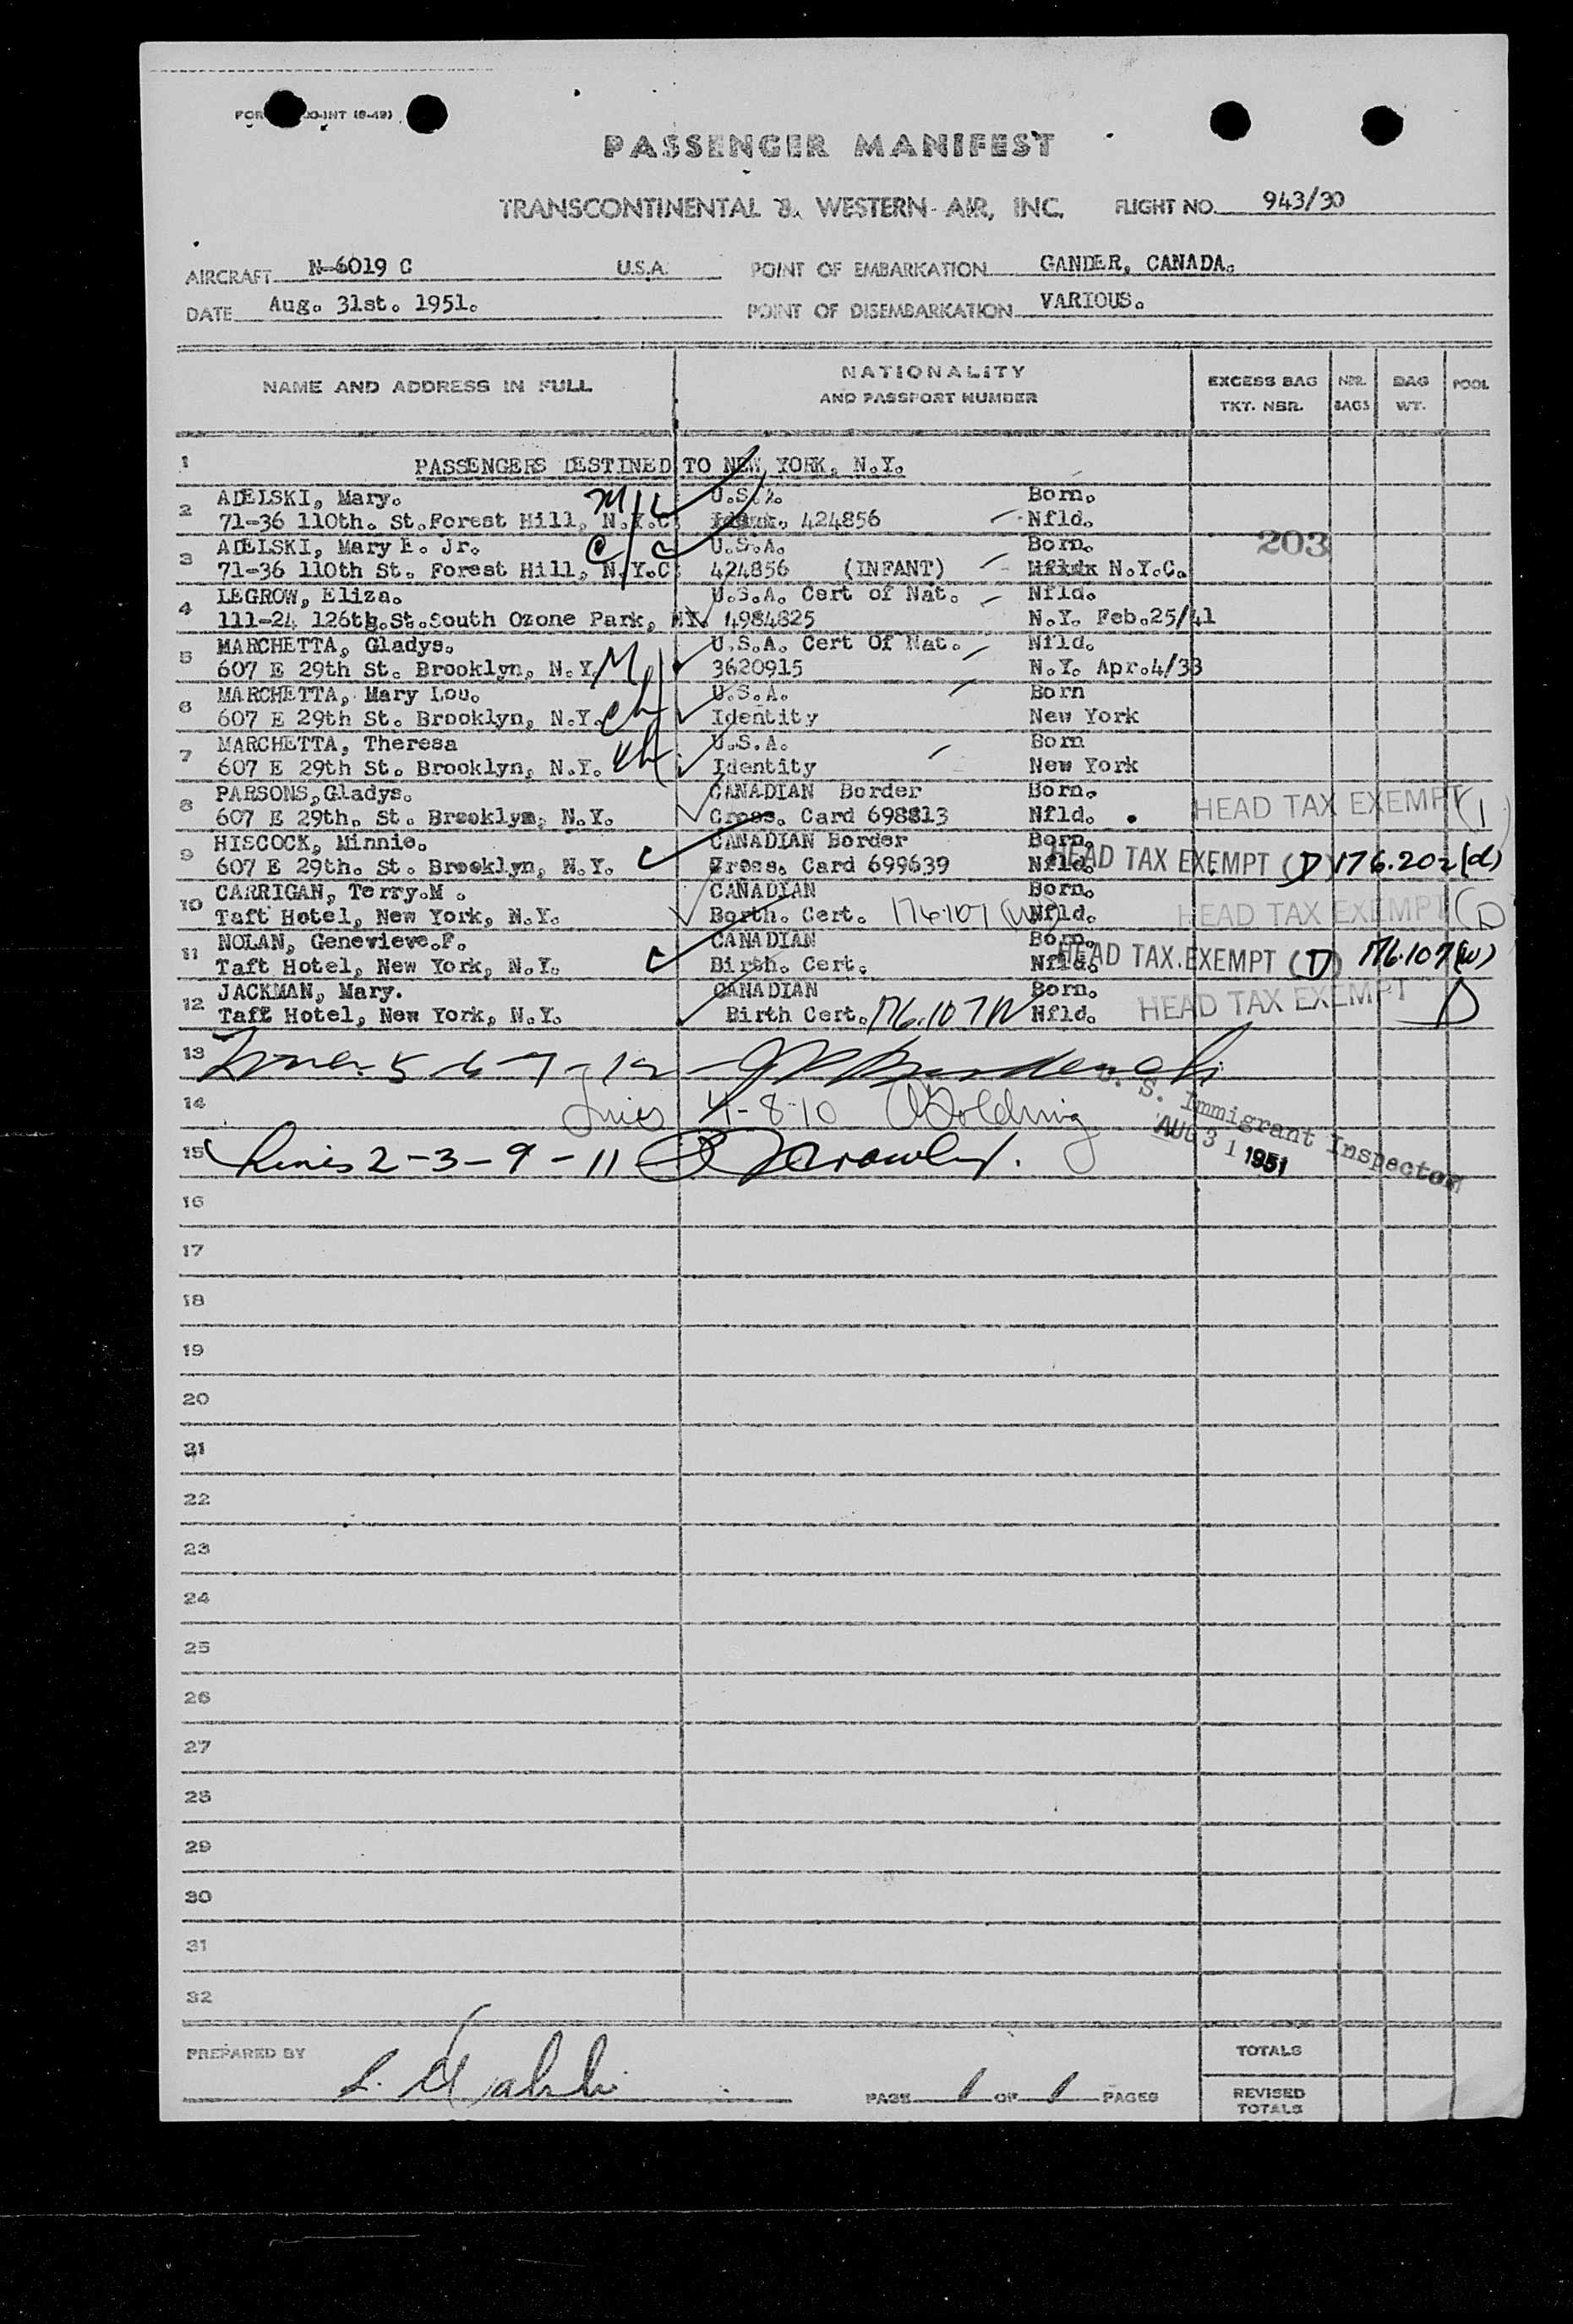 PASSENGER MANIFEST
TRANSCONTINENTAL & WESTERN AIR, INC. FLIGHT NO. 943/30
AIRCRAFT N-6019 C U.S.A. POINT OF EMBARKATION GANDER, CANADA.
DATE Aug. 31st. 1951. POINT OF DISEMBARKATION VARIOUS.
NAME AND ADDRESS IN FULL NATIONALITY AND PASSPORT NUMBER EXCESS BAG TKT. NBR. NBR. BAGS BAG WT. POOL
1 PASSENGERS DESTINED TO NEW YORK, N.Y.
2 ADELSKI, Mary. U.S.A. Born.
71-36 110th. St.Forest Hill, N.Y.C. 424856 Nfld.
203
3 ADELSKI, Mary E. Jr. U.S.A. Born.
71-36 110th St. Forest Hill, N.Y.C. 424856 (INFANT) N.Y.C.
4 LEGROW, Eliza. U.S.A. Cert of Nat. Nfld.
111-24 126th.St.South Ozone Park, NY. 4984825 N.Y. Feb.25/41
5 MARCHETTA, Gladys. U.S.A. Cert Of Nat. Nfld.
607 E 29th St. Brooklyn, N.Y. 3620915 N.Y. Apr.4/33
6 MARCHETTA, Mary Lou. U.S.A. Born
607 E 29th St. Brooklyn, N.Y. Identity New York
7 MARCHETTA, Theresa U.S.A. Born
607 E 29th St. Brooklyn, N.Y. Identity New York
8 PARSONS,Gladys. CANADIAN Border Born.
607 E 29th. St. Brooklym, N.Y. Cross. Card 698813 Nfld. HEAD TAX EXEMPT
9 HISCOCK, Minnie. CANADIAN Border Born.
607 E 29th. St. Brooklyn, N.Y. Cross. Card 699639 Nfld. HEAD TAX EXEMPT (D) 176.202(d)
10 CARRIGAN, Terry.M . CANADIAN Born.
Taft Hotel, New York, N.Y. Borth. Cert. 176107 (W) Nfld. HEAD TAX EXEMPT (D
11 NOLAN, Genevieve.F. CANADIAN Born.
Taft Hotel, New York, N.Y. Birth. Cert. Nfld. HEAD TAX EXEMPT (D) 176.107(w)
12 JACKMAN, Mary. CANADIAN Born.
Taft Hotel, New York, N.Y. Birth Cert. 176.107W Nfld. HEAD TAX EXEMPT D
13 5-6-7-12
14 Lines 4-8-10 Golding
U. S. Immigrant Inspector
AUG 31 1951
15 Lines 2-3-9-11
16
17
18
19
20
21
22
23
24
25
26
27
28
29
30
31
32
PREPARED BY PAGE 1 OF 1 PAGES
TOTALS
REVISED TOTALS